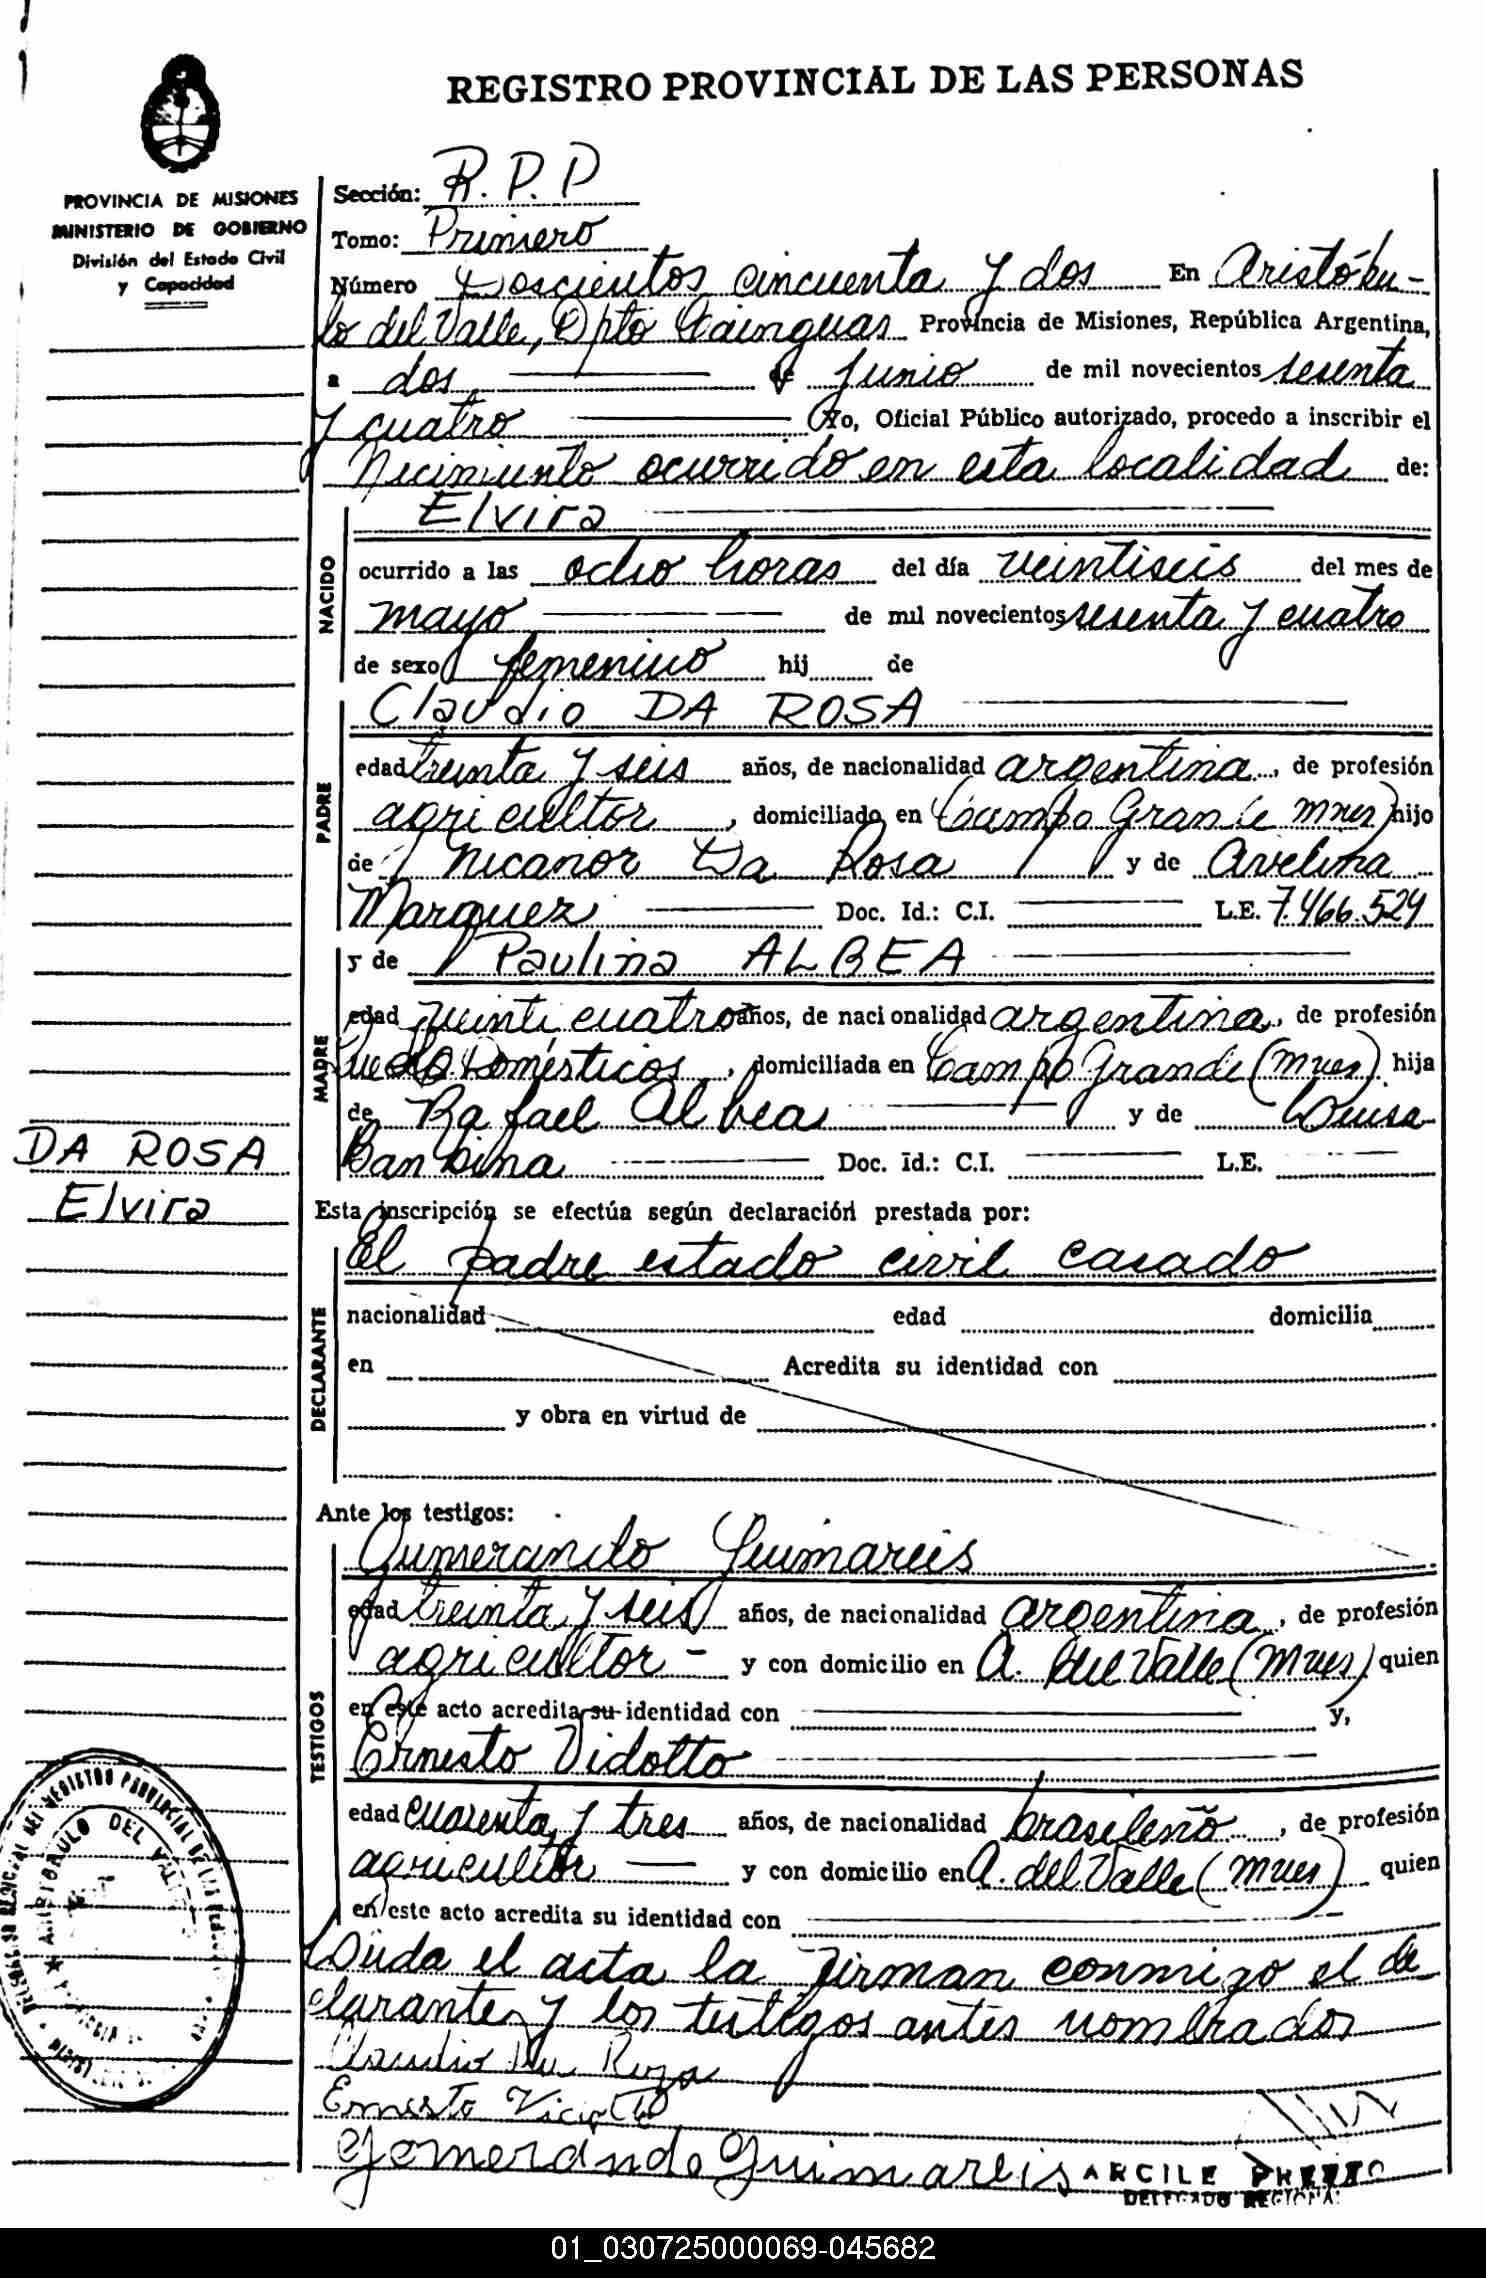 REGISTRO PROVINCIAL DE LAS PERSONAS
PROVINCIA DE MISIONES
MINISTERIO DE GOBIERNO
División del Estado Civil
y Capacidad
Sección: R.P.P
Tomo: Primero
Número Doscientos cincuenta y dos En Aristóbu-
lo del Valle, Dpto Cainguas Provincia de Misiones, República Argentina,
a dos de Junio de mil novecientos sesenta
y cuatro Yo, Oficial Público autorizado, procedo a inscribir el
Necimiento ocurrido en esta localidad de:
NACIDO
Elvira
ocurrido a las ocho horas del día veintiseis del mes de
mayo de mil novecientos sesenta y cuatro
de sexo femenino hij de
PADRE
Claudio DA ROSA
edad treinta y seis años, de nacionalidad argentina, de profesión
agricultor, domiciliado en Campo Grande Mnes) hijo
de Nicanor Da Rosa y de Avelina
Marquez Doc. Id.: C.I. L.E. 7.466.524
MADRE
y de Paulina ALBEA
edad veinti cuatro años, de nacionalidad argentina, de profesión
Domésticos, domiciliada en Campo Grande (Mnes) hija
de Rafael Albea y de Luisa
Bambina Doc. id.: C.I. L.E.
DA ROSA
Elvira
Esta inscripción se efectúa según declaración prestada por:
DECLARANTE
El padre estado civil casado
nacionalidad edad domicilia
en Acredita su identidad con
y obra en virtud de
Ante los testigos:
TESTIGOS
Gumercindo Guimareis
edad treinta y seis años, de nacionalidad argentina, de profesión
agricultor - y con domicilio en A. del Valle (Mnes) quien
en este acto acredita su identidad con y,
Ernesto Vidotto
edad cuarenta y tres años, de nacionalidad brasileño, de profesión
agricultor y con domicilio en A. del Valle (Mnes) quien
en este acto acredita su identidad con
el acta la firman conmigo el de
clarante y los testigos antes nombrados
Claudio Da Roza
Ernesto
Gomercindo Guimareis
ARCILE
DELEGADO REGIONAL
REGISTRO PROVINCIAL DE LAS
ARISTOBULO DEL VALLE
01_030725000069-045682